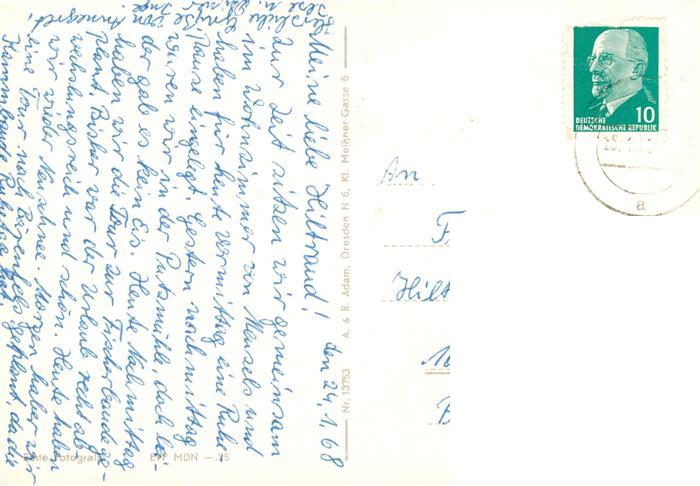 den 24.1.68
Meine liebe Hiltraud!
Zur Zeit sitzen wir gemeinsam
im Wohnzimmer von Menzels und
haben für heute vormittag eine Ruhe-
pause eingelegt. Gestern nachmittag
waren wir in der Putzmühle, doch lei-
der gab es kein Eis. Heute Nachmittag
haben wir die Tour zur Fischerbaude ge-
plant. Bisher war der Urlaub recht ab
und schön. Heute haben
wir wieder Neuschnee. Morgen haben wir
eine Tour nach Bärenfels geplant, da die
Herzliche Grüße von
Annegret,
Inge
Nr. 13753 A. & R. Adam, Dresden N 6, Kl. Meißner Gasse 6
Echte Fotografie EVP MDN —.25
10
DEUTSCHE
DEMOKRATISCHE REPUBLIK
a
An
F
Hilt